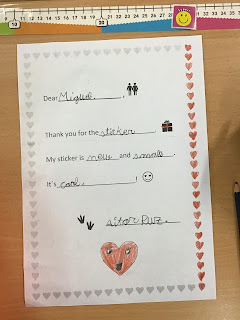 Dear Miguel.,
Thank you for the sticker
My sticker is new and small.
It's cool. !
Aitor Ruz.